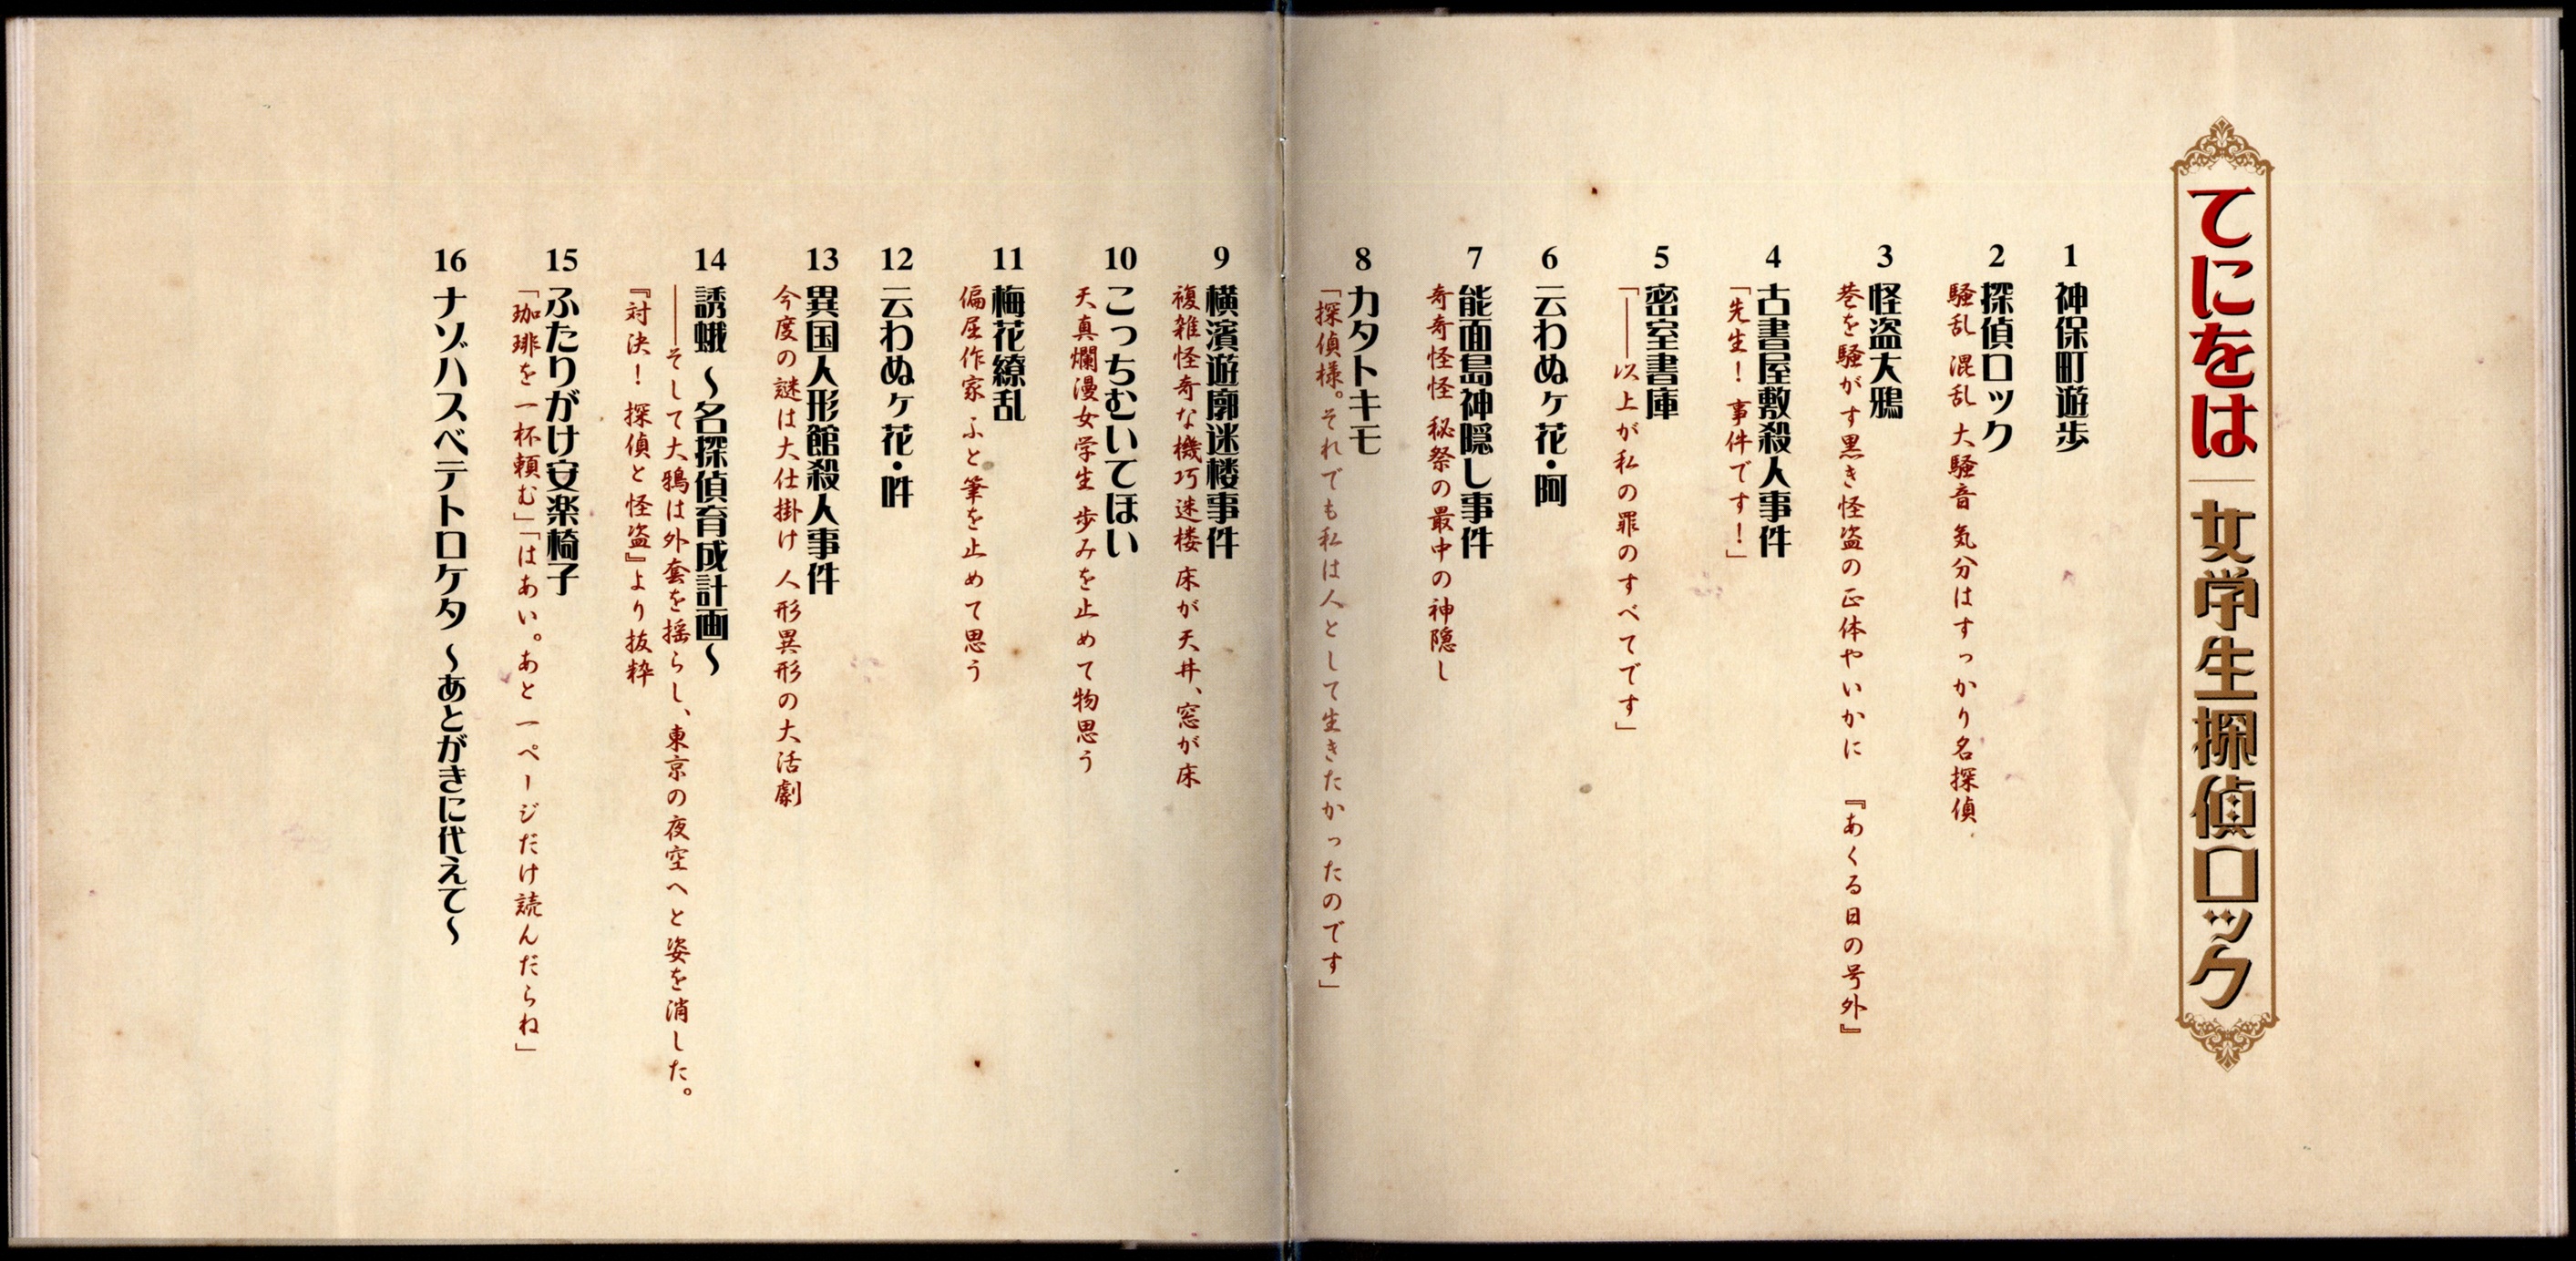 てにをは
女学生探偵ロック
1 神保町遊歩
2 探偵ロック
騒乱 混乱 大騒音 気分はすっかり名探偵
3 怪盗大鴉
巷を騒がす黒き怪盗の正体やいかに 『あくる日の号外』
4 古書屋敷殺人事件
「先生！ 事件です！」
5 密室書庫
「――以上が私の罪のすべてです」
6 云わぬヶ花・阿
7 能面島神隠し事件
奇奇怪怪 秘祭の最中の神隠し
8 カタトキモ
「探偵様。それでも私は人として生きたかったのです」
9 横濱遊廓迷楼事件
複雑怪奇な機巧迷楼 床が天井、窓が床
10 こっちむいてほい
天真爛漫女学生 歩みを止めて物思う
11 梅花繚乱
偏屈作家 ふと筆を止めて思う
12 云わぬヶ花・吽
13 異国人形館殺人事件
今度の謎は大仕掛け 人形異形の大活劇
14 誘蛾 〜名探偵育成計画〜
――そして大鴉は外套を揺らし、東京の夜空へと姿を消した。
『対決！ 探偵と怪盗』より抜粋
15 ふたりがけ安楽椅子
「珈琲を一杯頼む」「はあい。あと一ページだけ読んだらね」
16 ナゾハスベテトロケタ 〜あとがきに代えて〜